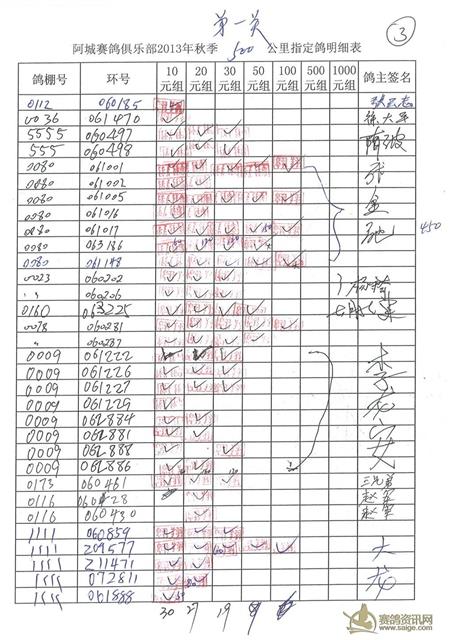 第一关
③
阿城赛鸽俱乐部2013年秋季 500 公里指定鸽明细表
鸽棚号 环号 10元组 20元组 30元组 50元组 100元组 500元组 1000元组 鸽主签名
0112 060185
0036 061470
5555 060497
555 060498
0080 061001
0080 061002
0080 061005 金
0080 061016
0080 061017 450
0080 065186
0080 061188
0023 060202
〃 060206
0160 063225
0078 060281
〃 060287
0009 061222 李
0009 061226
0009 061227
0009 061229
0009 062884
0009 062881
0009 062888
0009 062886
0173 060461
0116 060428 赵军
0116 060430 赵军
1111 060859
1111 209577 大
1111 211471
1111 072811 龙
1111 061888
30 27 19 8
赛鸽资讯网
www.saige.com